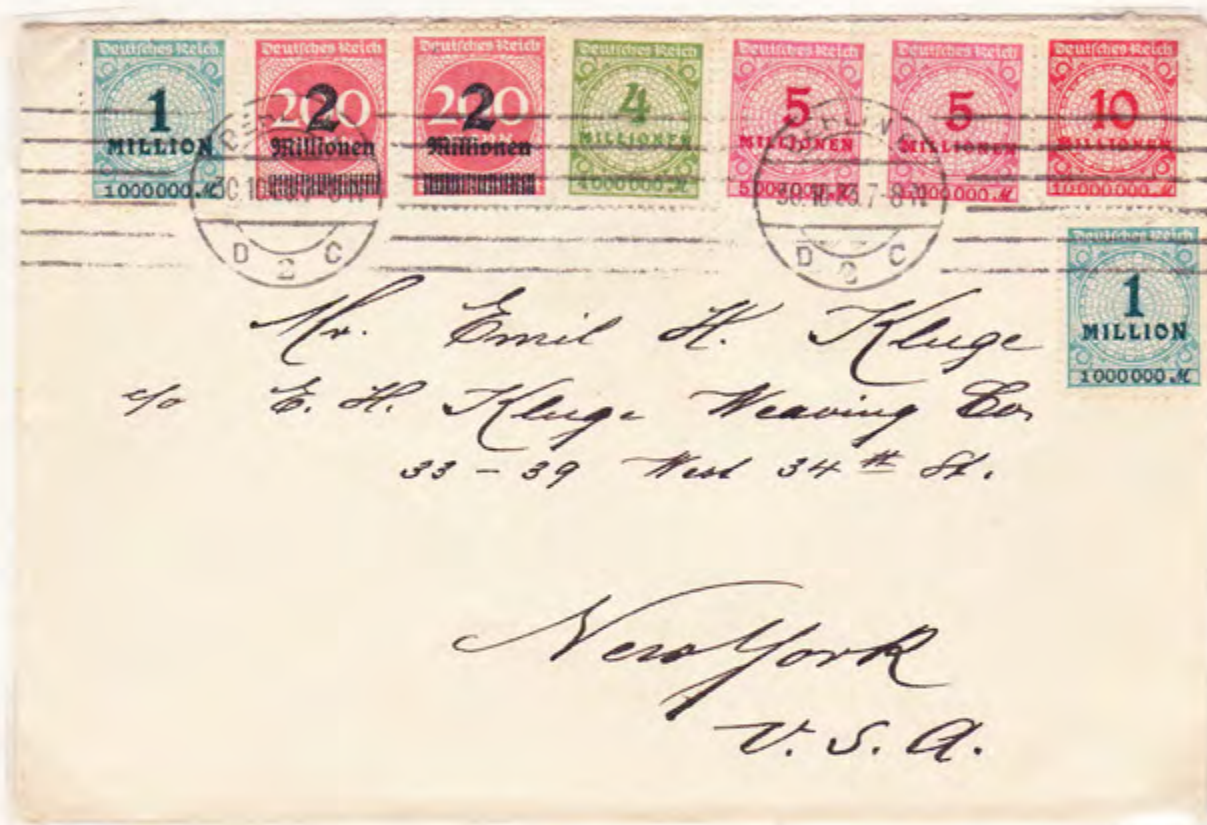 Deutsches Reich
1
MILLION
1000000 M
Deutsches Reich
200
2
Millionen
Deutsches Reich
200
2
Millionen
Deutsches Reich
4
MILLIONEN
4000000 M
Deutsches Reich
5
MILLIONEN
5000000 M
Deutsches Reich
5
MILLIONEN
5000000 M
Deutsches Reich
10
MILLIONEN
10000000 M
BERLIN
D 2 C
BERLIN
30.10.23.7-8N
D 2 C
Deutsches Reich
1
MILLION
1000000 M
Mr. Emil H. Kluge
c/o E. H. Kluge Weaving Co
33 - 39 West 34th St.
New York
U. S. A.